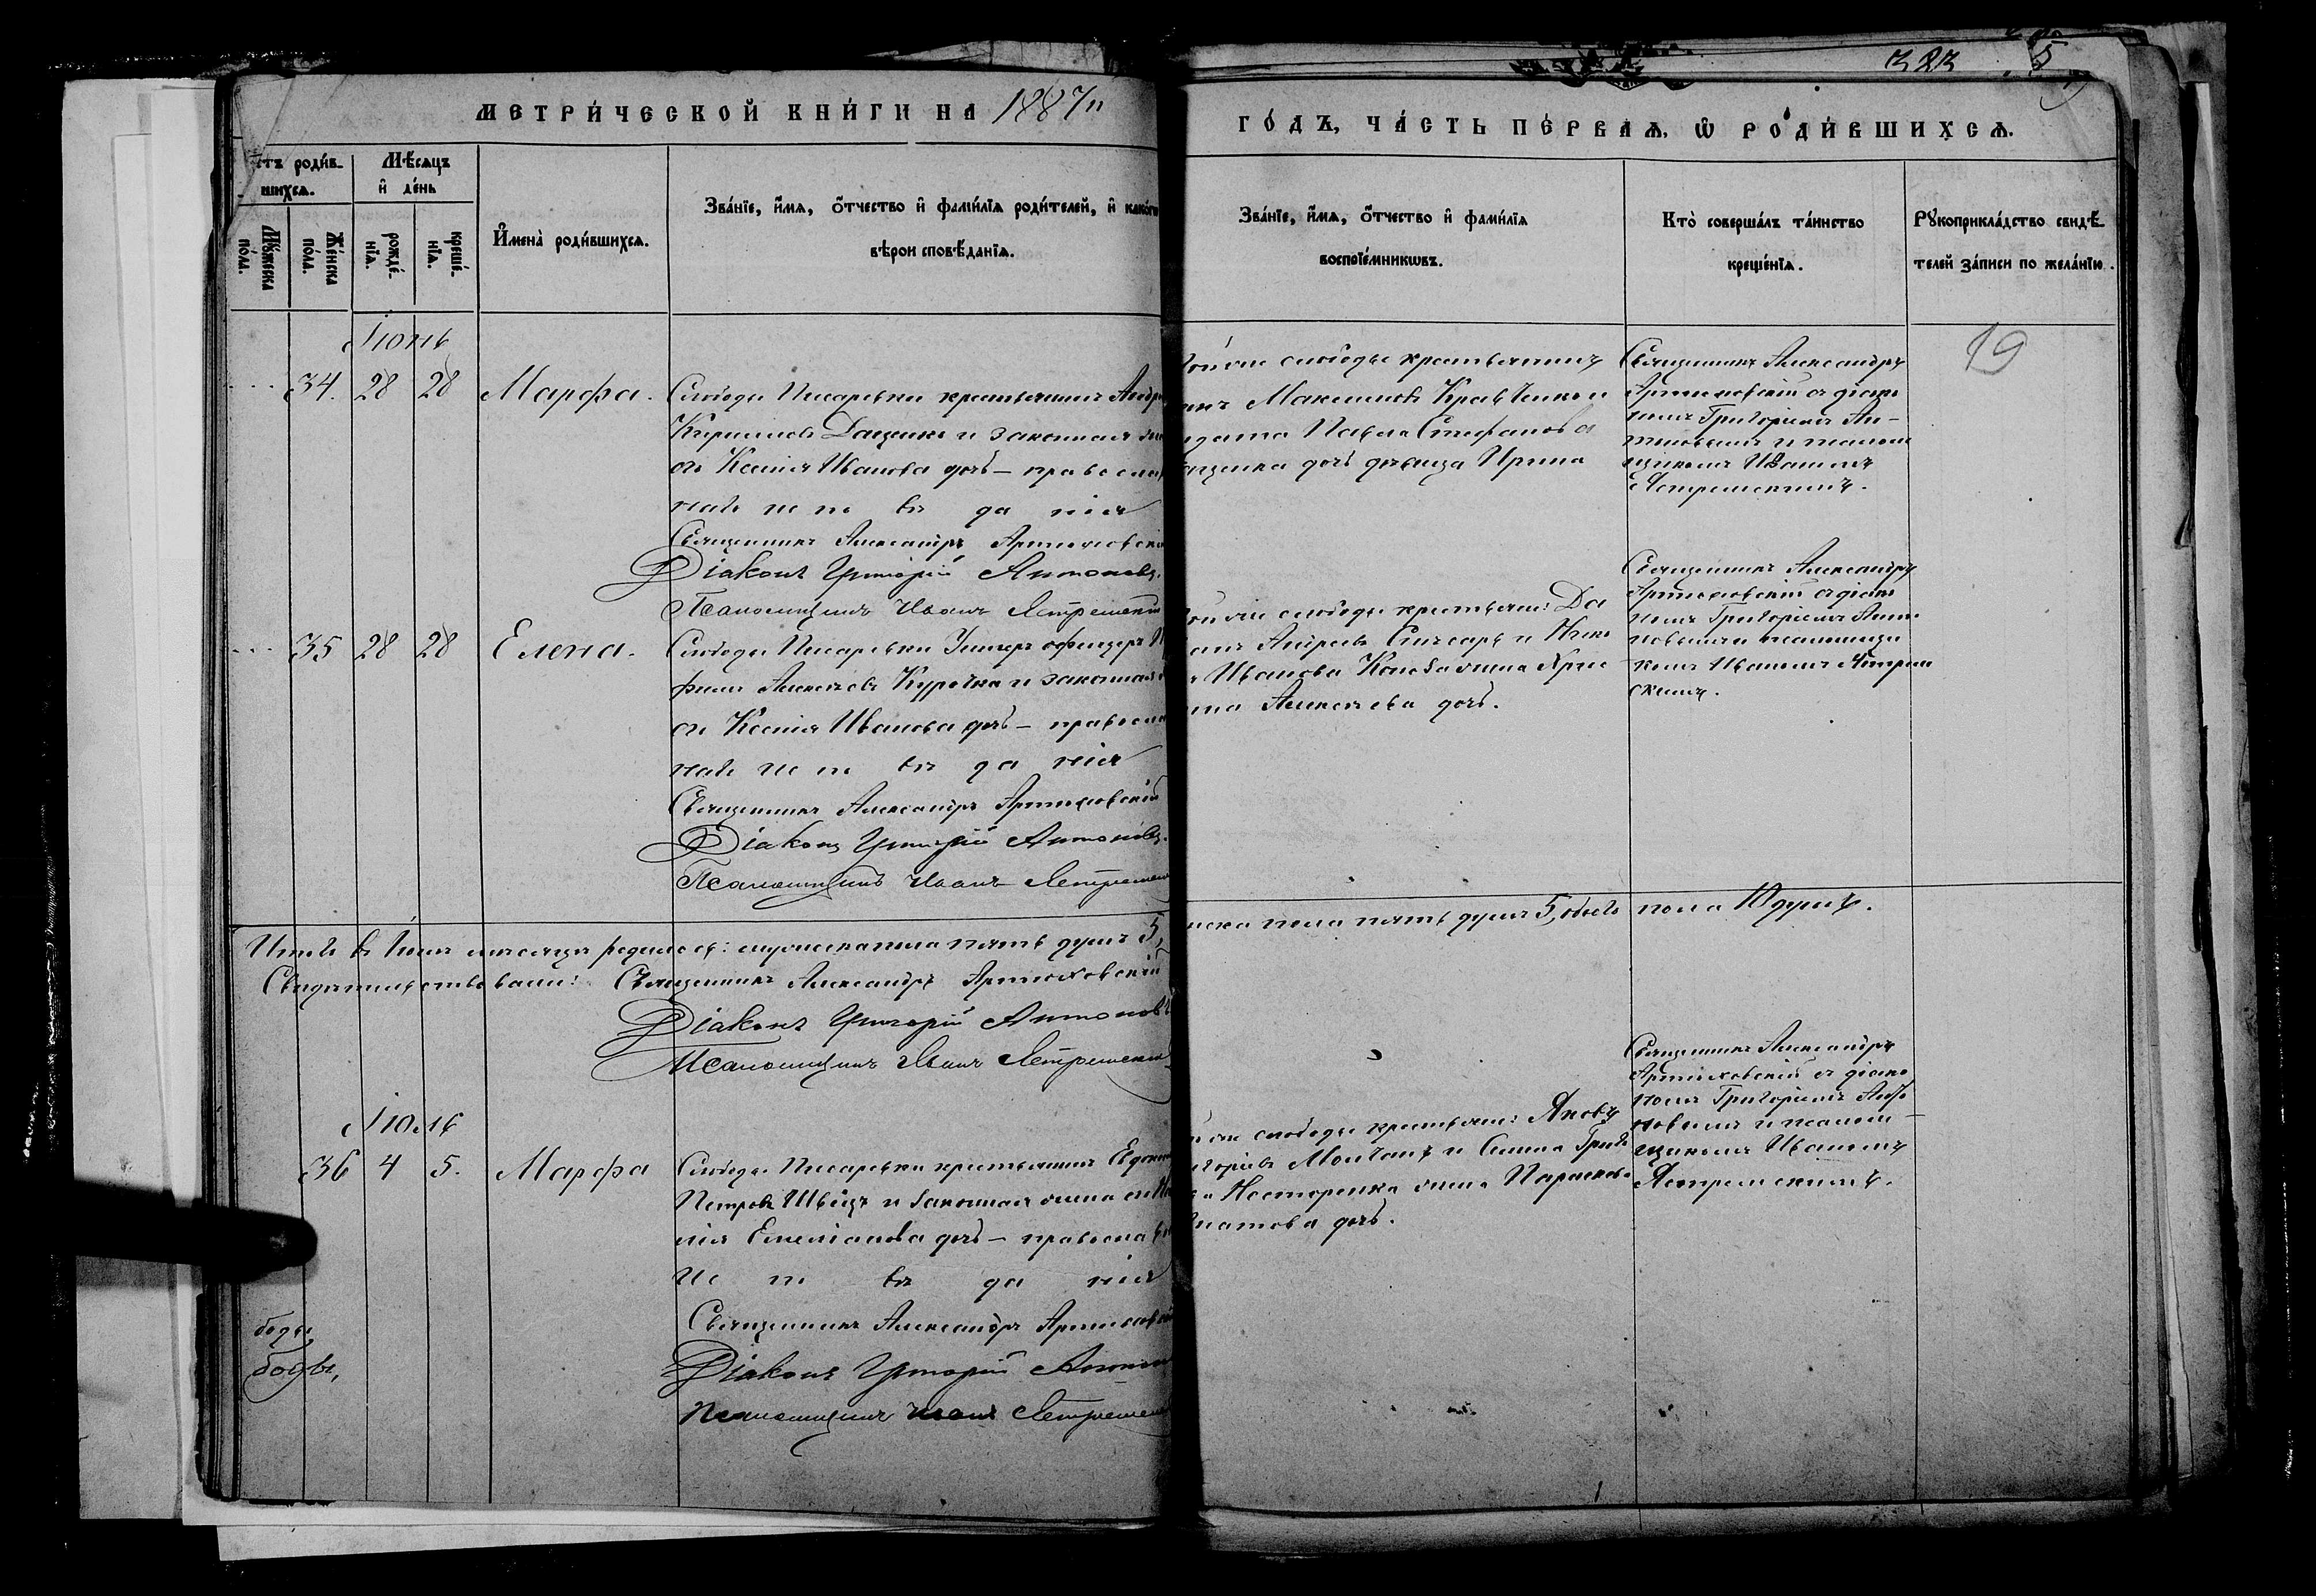 МЕТРИ́ЧЕСКОЙ КНИ́ГИ НА 1887й
ГО́ДЪ, ЧА́СТЬ ПЕ́РВАѦ, Ѡ РОДИ́ВШИХСѦ.
323
5
19
роди́в-
шихсѧ.
Мѣ́сѧцъ
и҆ де́нь
Мꙋ́жеска
по́ла.
Же́нска
по́ла.
рожде́-
нїѧ.
креще́-
нїѧ.
И҆мена̀ роди́вшихсѧ.
Зва́нїе, и҆́мѧ, ѻ҆́тчество и҆ фами́лїѧ роди́телей, и҆ како́гѡ
вѣрои сповѣ́данїѧ.
Зва́нїе, и҆́мѧ, ѻ҆́тчество и҆ фами́лїѧ
воспрїе́мникѡвъ.
Кто̀ соверша́лъ та́инство
креще́нїѧ.
Рꙋкоприкла́дство свидѣ́-
телей за́писи по жела́нїю.
Іюнь
34. 28 28 Марфа.
Слободы Писаревки крестьянинъ Андре
Кирилловъ Даценко и законная же
его Ксенія Иванова дочь — правосла
наго испо вѣ да нія
Священникъ Александръ Артюховскій
Діаконъ Григорій Антоновъ.
Псаломщикъ Иванъ Ястремскі
той же слободы крестьянинъ
Максимовъ Кравченко и
Павла Стефанова
аценка дочь дѣвица Ирина
Священникъ Александръ
Артюховскій съ діако
номъ Григоріемъ Ан-
тоновымъ и псалом
щикомъ Иваномъ
Ястремскимъ.
35 28 28 Елена.
Слободы Писаревки Унтеръ офицеръ
Алексѣевъ Курочка и законная
его Ксенія Иванова дочь — правосла
наго испо вѣ да нія
Священникъ Александръ Артюховскій
Діаконъ Григорій Антоновъ.
Псаломщикъ Иванъ Ястремск
той же слободы крестьяне: Да
Андреевъ Слюсарь и
Иванова жена Хрис
тина Алексѣева дочь.
Священникъ Александръ
Артюховскій съ діако
номъ Григоріемъ Анто
новымъ и псаломщи
комъ Иваномъ Ястрем
скимъ.
Итого въ Іюнѣ мѣсяцѣ родилось: мужеска пола пять душъ 5,
нска пола пять душъ 5, обоего пола 10 душъ.
Свидѣтельствовали: Священникъ Александръ Артюховскій
Діаконъ Григорій Антоновъ
Псаломщикъ Иванъ Ястремскі
Іюль
36 4 5. Марфа
Слободы Писаревки крестьянинъ Евдоким
Петровъ Швецъ и законная жена его
нія Емеліанова дочь — православ
ис по вѣ да нія
Священникъ Александръ Артюховскі
Діаконъ Григорій Антонов
Псаломщикъ Иванъ Ястремск
же слободы крестьяне: Яковъ
игоріевъ Молчанъ и Симона Григо
Несторенка жена Параскева
дочь.
Священникъ Александръ
Артюховскій съ діако
номъ Григоріемъ Анто
новымъ и псалом-
щикомъ Иваномъ
Ястремскимъ.
боды
боды,